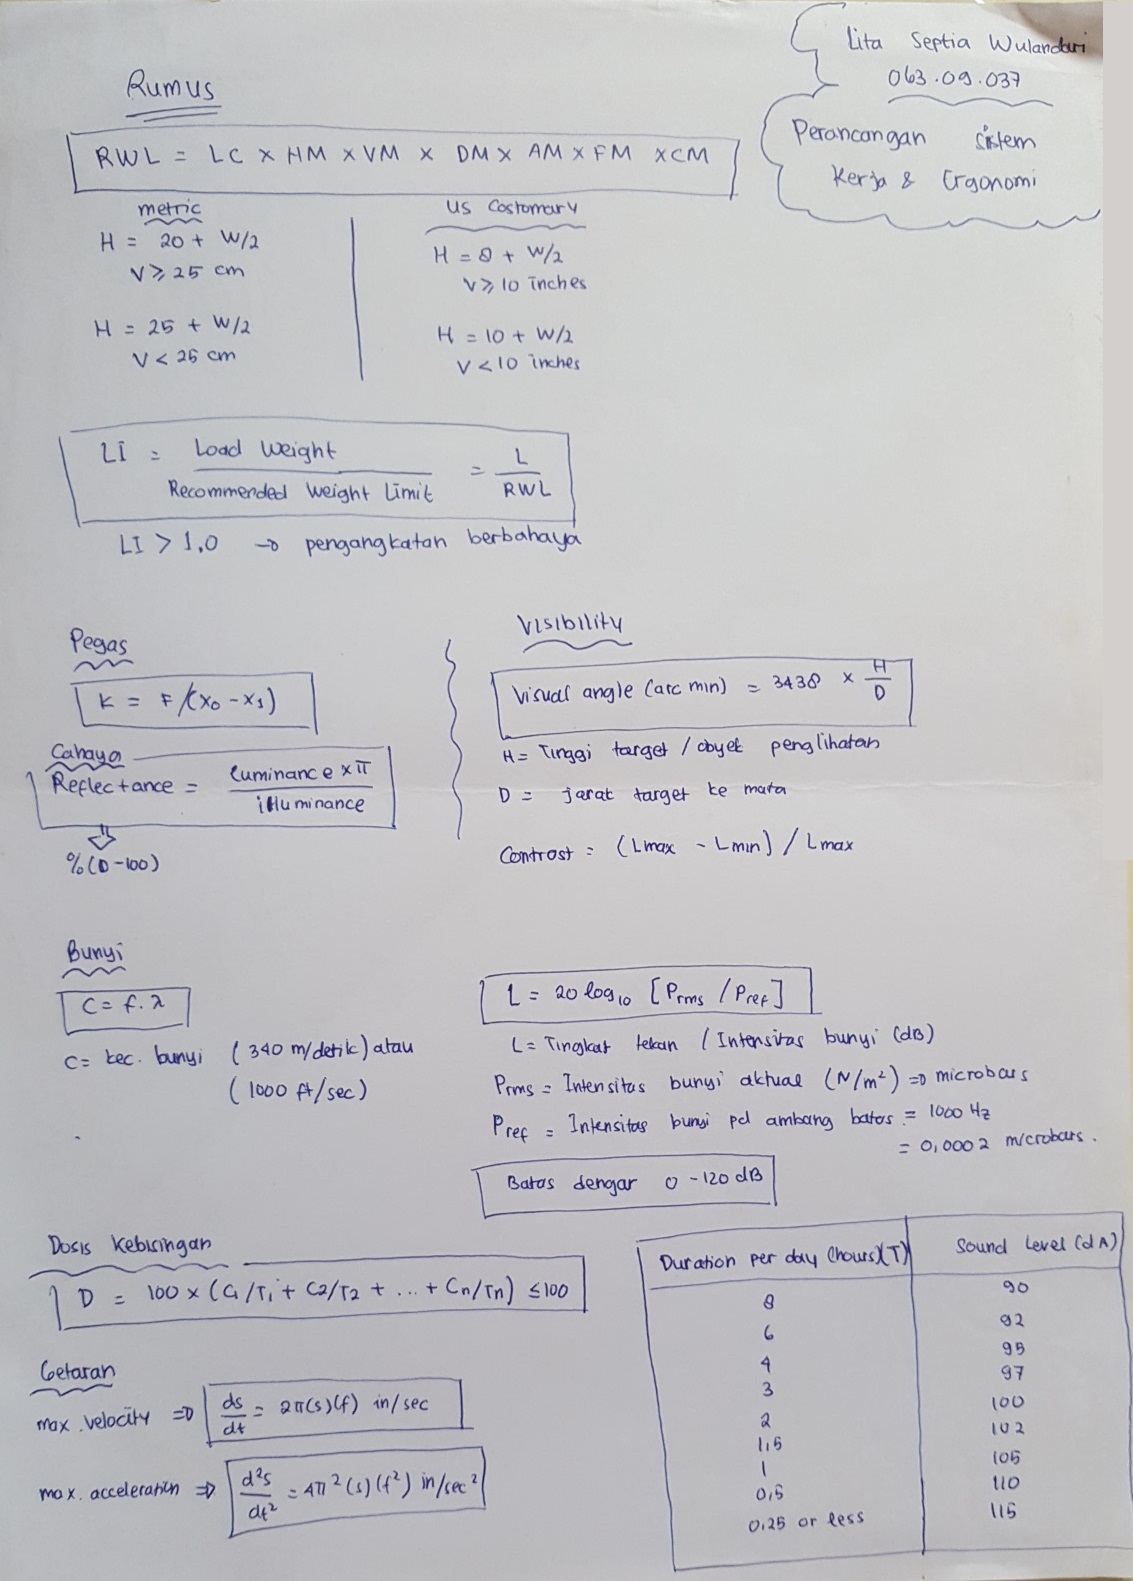 Lita Septia Wulandari
063.09.037
Perancangan Sistem
Kerja & Ergonomi
Rumus
RWL = LC x HM x VM x DM x AM x FM x CM
metric
H = 20 + W/2
V ≥ 25 cm
H = 25 + W/2
V < 25 cm
US Costomary
H = 8 + W/2
V ≥ 10 inches
H = 10 + W/2
V < 10 inches
LI = Load Weight / Recommended Weight Limit = L / RWL
LI > 1.0 → pengangkatan berbahaya
Pegas
K = F/(x₀ - x₁)
Cahaya
Reflectance = luminance x π / illuminance
% (0-100)
Visibility
Visual angle (arc min) = 3438 x H/D
H = Tinggi target / obyek penglihatan
D = jarak target ke mata
Contrast = (Lmax - Lmin) / Lmax
Bunyi
C = f.λ
C = kec. bunyi (340 m/detik) atau
(1000 ft/sec)
L = 20 log₁₀ [Prms / Pref]
L = Tingkat tekan / Intensitas bunyi (dB)
Prms = Intensitas bunyi aktual (N/m²) ⇒ microbars
Pref = Intensitas bunyi pd ambang batas = 1000 Hz
= 0,0002 microbars.
Batas dengar 0 - 120 dB
Dosis Kebisingan
D = 100 x (C₁/T₁ + C2/T2 + ... + Cn/Tn) ≤ 100
Getaran
max. velocity ⇒ ds/dt = 2π(s)(f) in/sec
max. acceleration ⇒ d²s/dt² = 4π²(s)(f²) in/sec²
Duration per day (hours)(T) Sound Level (dA)
8 90
6 92
4 95
3 97
2 100
1,5 102
1 105
0,5 110
0,25 or less 115